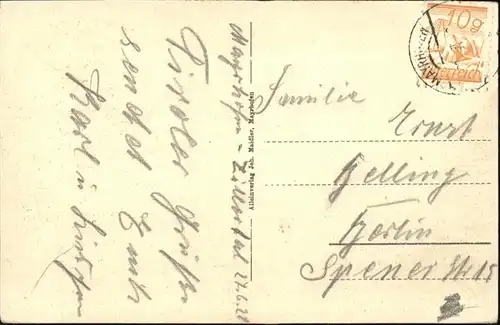 Mayrhofen - Zillertal 27.6.28
Tiroler Grüße
sendet Euch
Karl u.
Alleinverlag Joh. Maidler, Mayrhofen
10g
Österreich
Familie
Ernst
Helling
Berlin
Spener Str 15